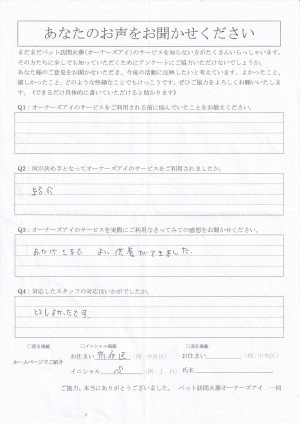 あなたのお声をお聞かせください
まだまだペット訪問火葬(オーナーズアイ)のサービスを知らない方がたくさんいらっしゃいます。
その方たちに少しでも知っていただくためにアンケートにご協力いただけないでしょうか。
あなた様のご意見をお聞かせいただき、今後の活動に反映したいと考えています。よかったこと、
嬉しかったこと、どのような些細なことでもけっこうです。ぜひご協力をよろしくお願いいたしま
す。(できるだけ具体的に書いていただけると助かります)
Q1:オーナーズアイのサービスをご利用される前に悩んでいたことをお教えください。
Q2:何が決め手となってオーナーズアイのサービスをご利用されましたか。
紹介
Q3:オーナーズアイのサービスを実際にご利用なさってみての感想をお聞かせください。
おかげさまで よい供養ができました。
Q4:対応したスタッフの対応はいかがでしたか。
とてもよかったです。
ホームページでご紹介
お住まい
(例:中央区)
お住まい
(例:中央区)
イニシャル
(例:J.H)
氏名
ご協力、本当にありがとうございました。 ペット訪問火葬オーナーズアイ 一同